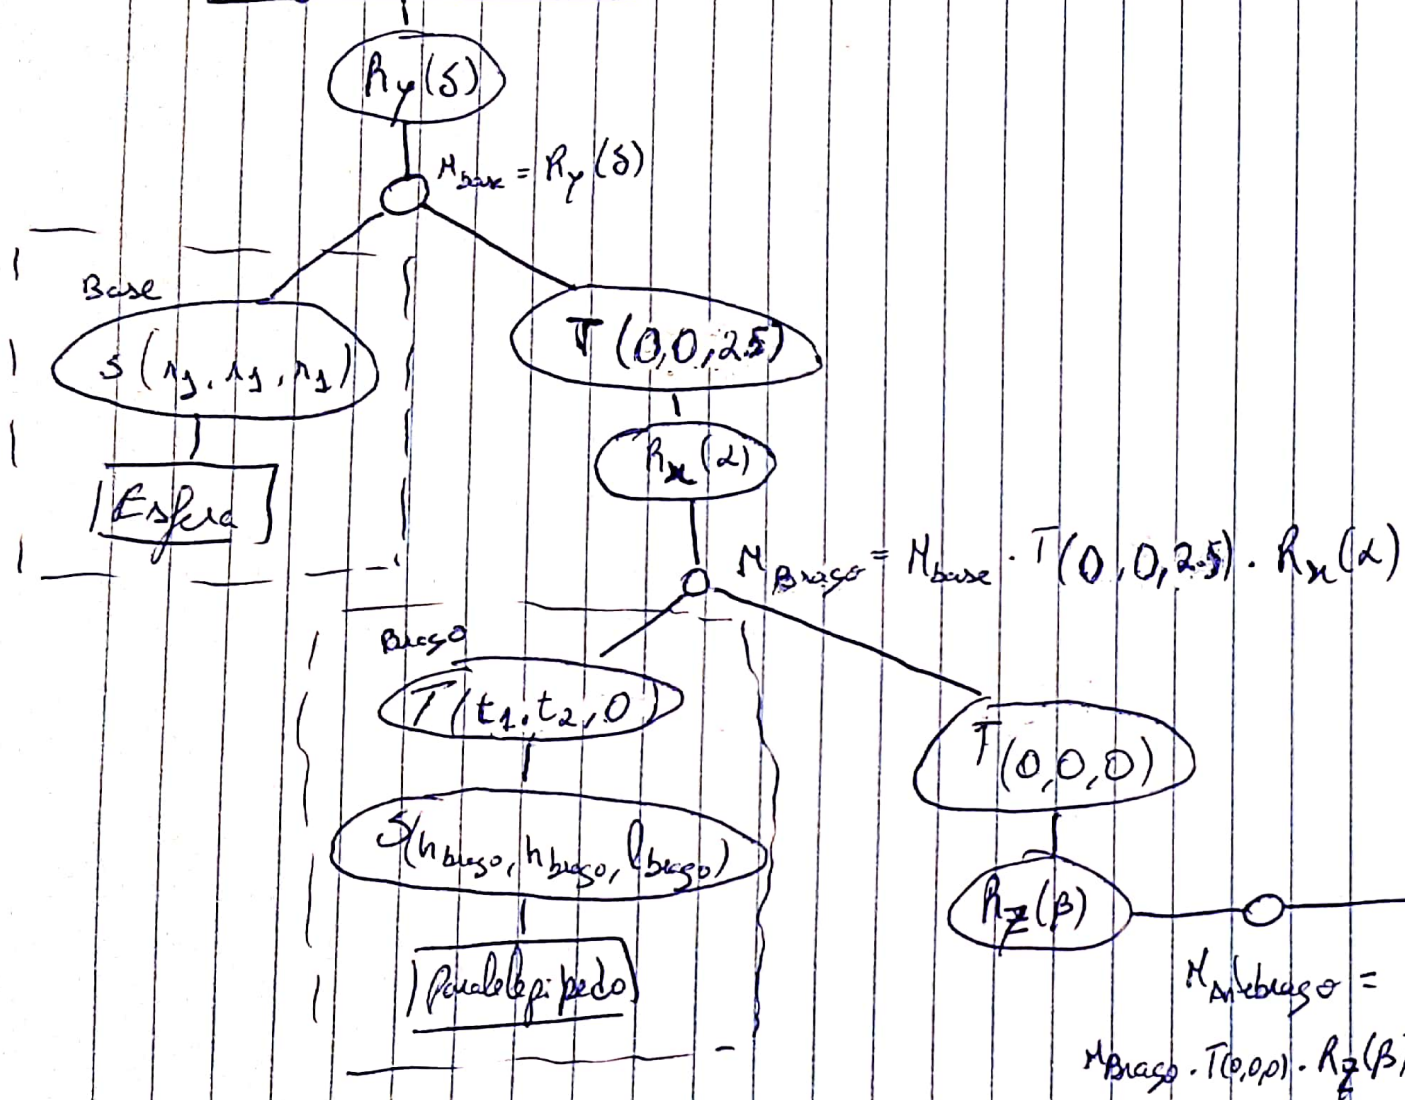 Ry(δ)
M_base = Ry(δ)
Base
S(r1, r1, r1)
Esfera
T(0,0,2.5)
Rx(α)
M_Braço = M_base · T(0,0,2.5) · Rx(α)
Braço
T(t1, t2, 0)
S(h_braço, h_braço, l_braço)
Paralelepipedo
T(0,0,0)
Rz(β)
M_Antebraço =
M_Braço · T(0,0,0) · Rz(β)